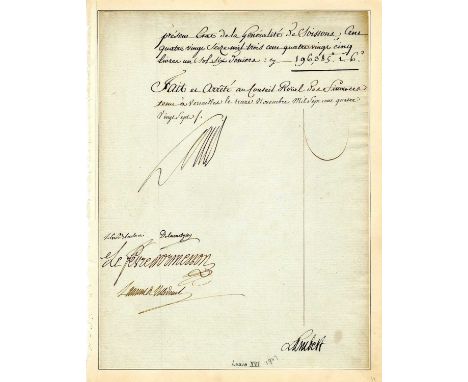 présent Etat de la Généralité de Soissons, Cent
quatre vingt Seize mil trois cent quatre vingt cinq
livres un sol six deniers: cy
Fait et Arrêté au Conseil Royal des Finances
tenu à Versailles le treize Novembre Mil Sept cent quatre
Vingt Sept /.
Louis
Le fevre d'ormesson
Lambert
Louis XVI